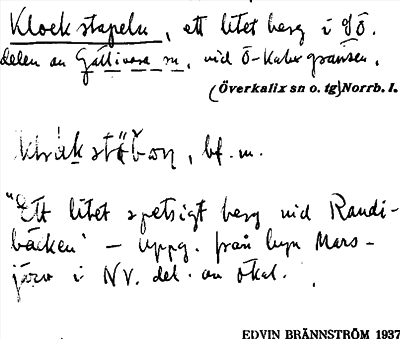 Klockstapeln, ett litet berg i SÖ.
delen av Gällivare sn, vid Ö-kalixgränsen.
(Överkalix sn o. tg) Norrb. l.
bf. m.
"Ett litet spetsigt berg vid Randi-
bäcken" – Uppg. från byn Mars-
järv i NV. del. av Ökal.
EDVIN BRÄNNSTRÖM 1937